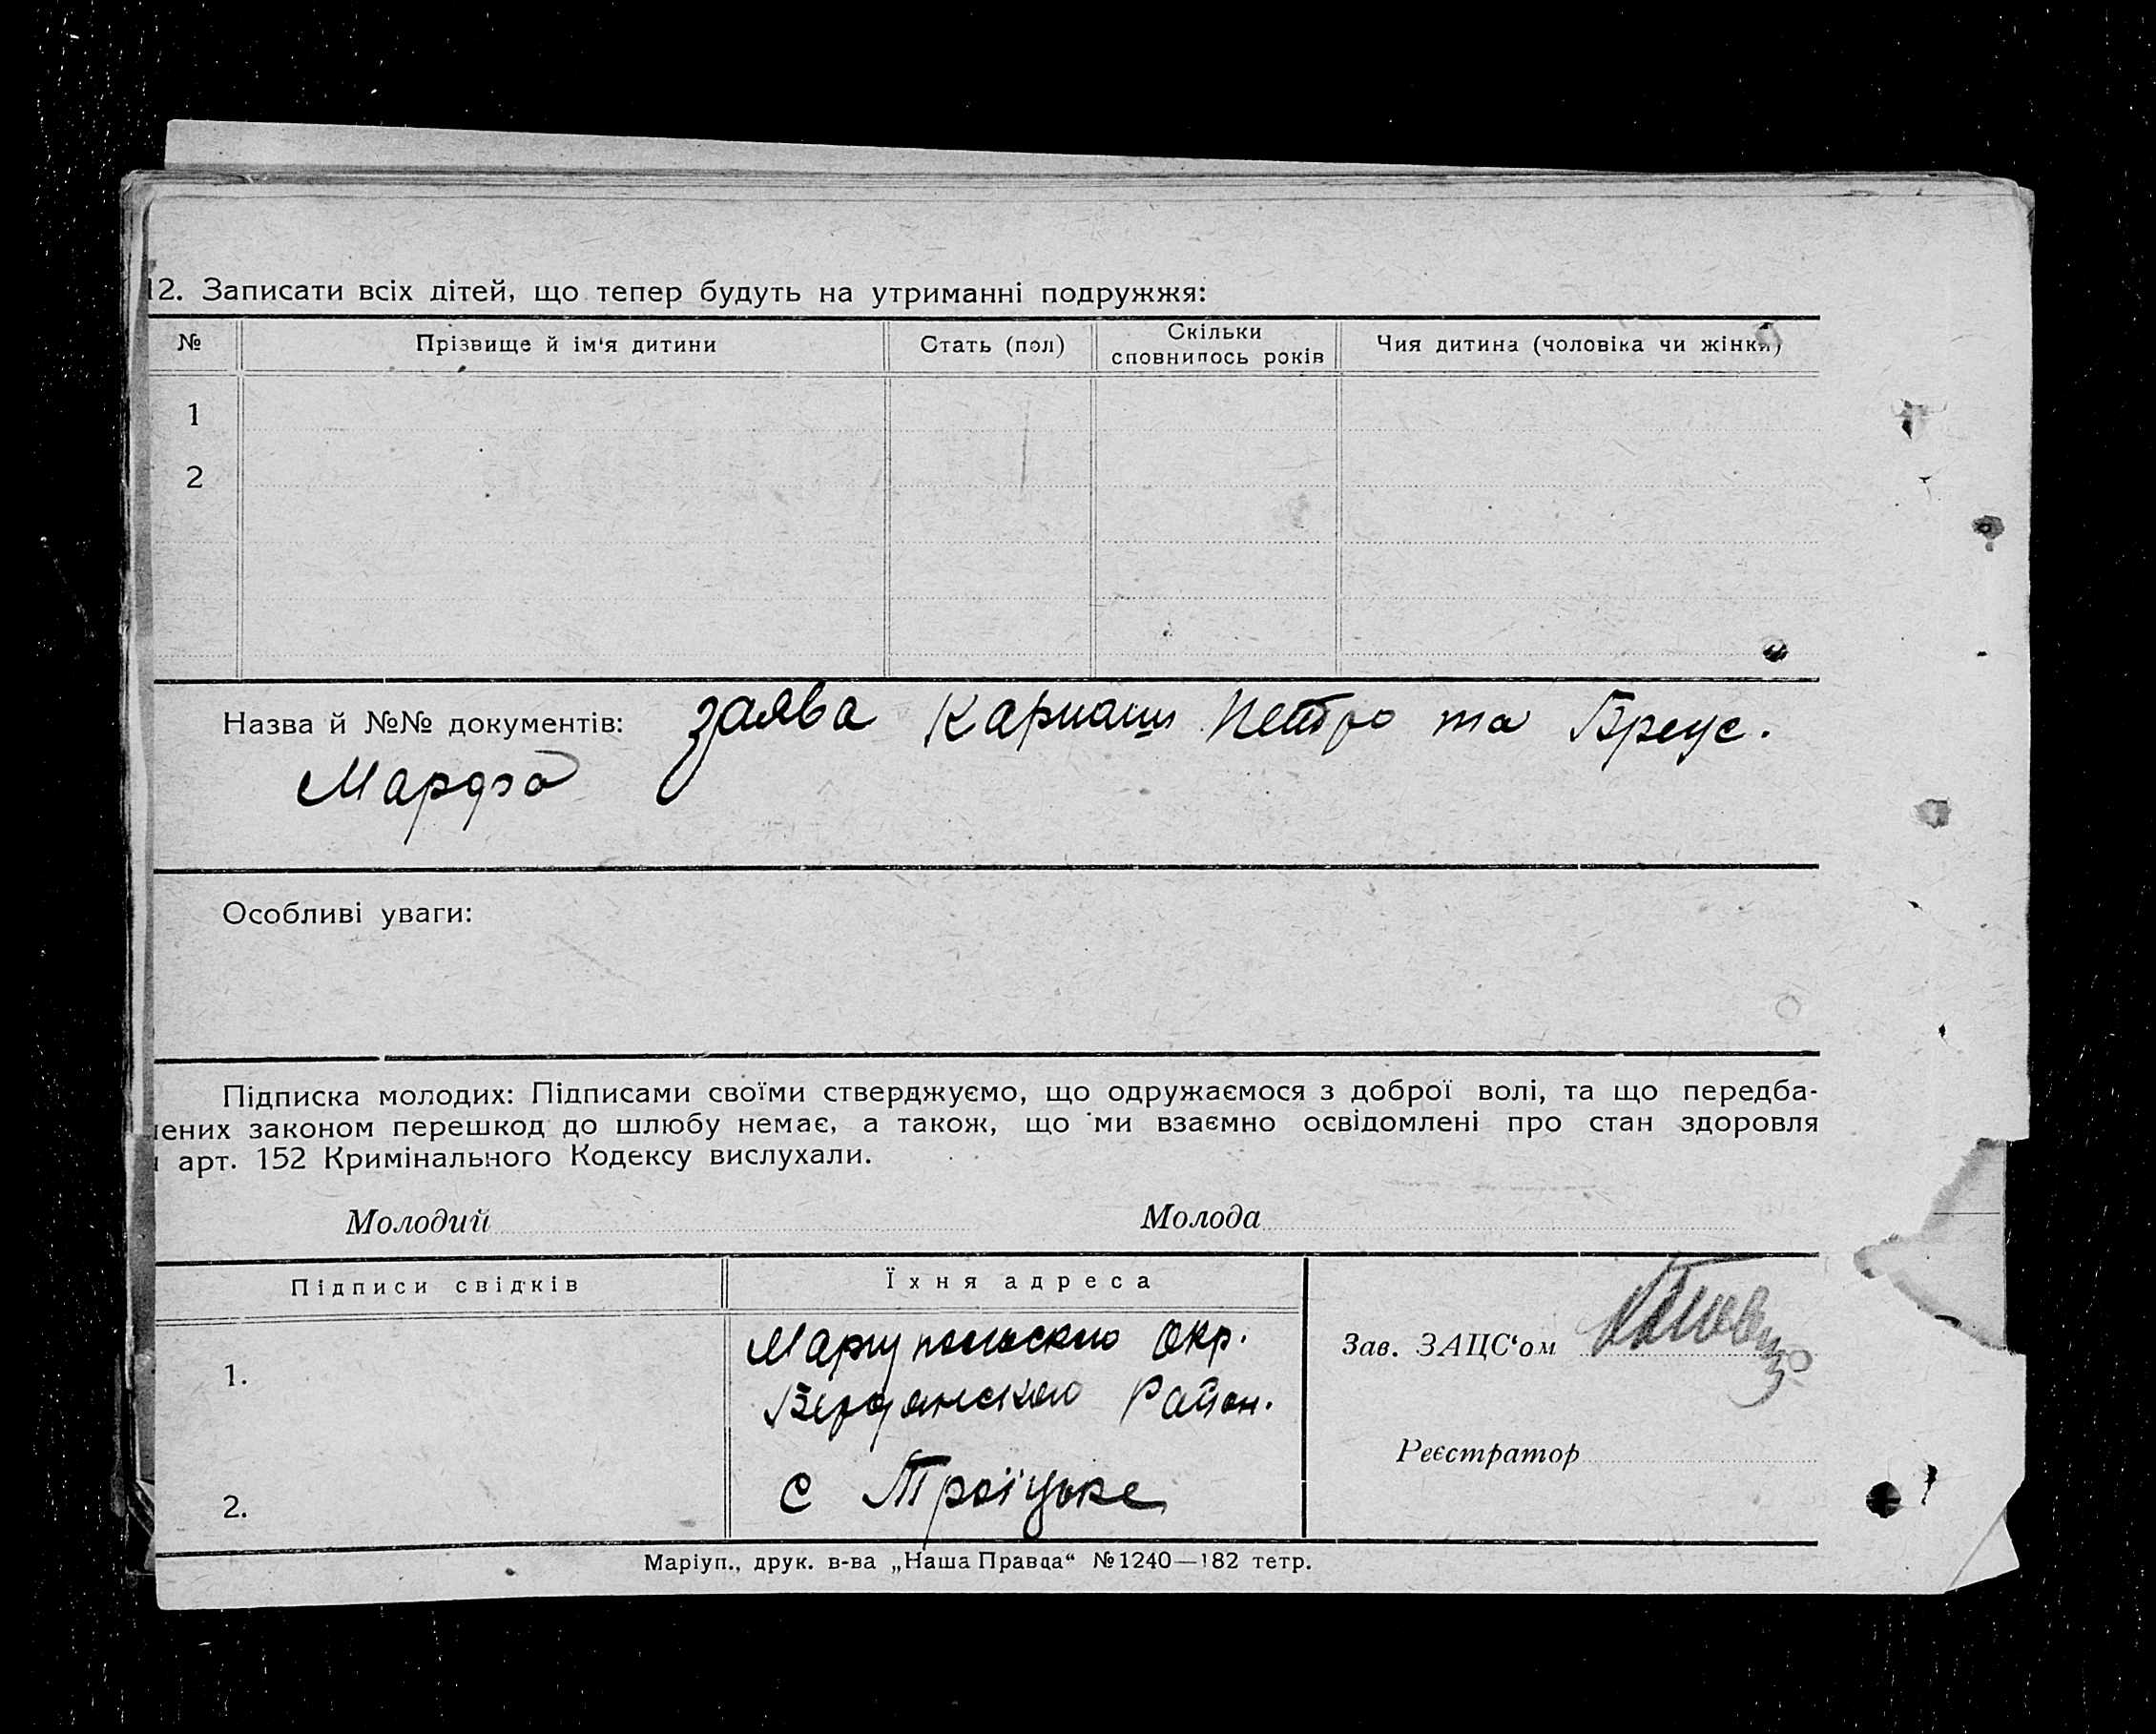 12. Записати всіх дітей, що тепер будуть на утриманні подружжя:
№ Прізвище й ім'я дитини Стать (пол) Скільки сповнилось років Чия дитина (чоловіка чи жінки)
1
2
Назва й №№ документів: заява Карпаш Петро та Бреус.
Марфа
Особливі уваги:
Підписка молодих: Підписами своїми стверджуємо, що одружаємося з доброї волі, та що передба-
чених законом перешкод до шлюбу немає, а також, що ми взаємно освідомлені про стан здоровля
арт. 152 Кримінального Кодексу вислухали.
Молодий Молода
Підписи свідків Їхня адреса
Зав. ЗАЦС'ом
1. Окр.
Район.
Реєстратор
2. с Троїцьке
Маріуп., друк. в-ва „Наша Правда“ №1240—182 тетр.